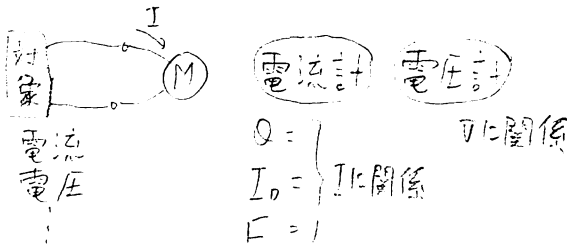 I
対象
M
電流計 電圧計
電流
電圧
⋮
Q =
I₀ = Iに関係
F =
Vに関係